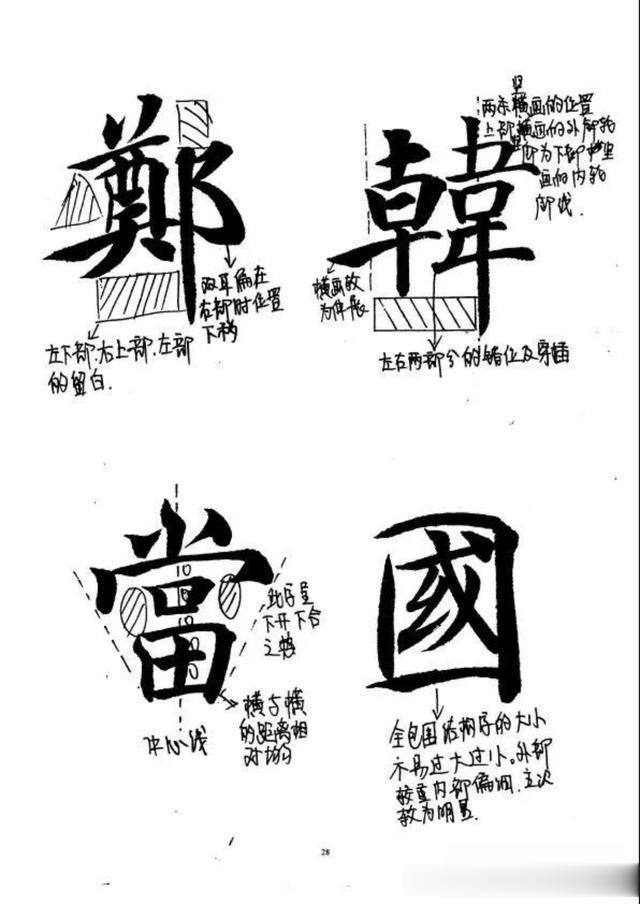 鄭
左下部.右上部.左部
的留白.
双耳偏在
右部时位置
下移
韓
竖
两条横画的位置
上部横画的外部轮
即为下部
画的内轮
廓线.
横画故
为伸展
左右两部分的错位及穿插
當
此字呈
下开下合
之势
横与横
的距离相
对均匀
中心线
國
全包围结构字的大小
不易过大过小。外部
较重内部偏细.主次
较为明显.
28